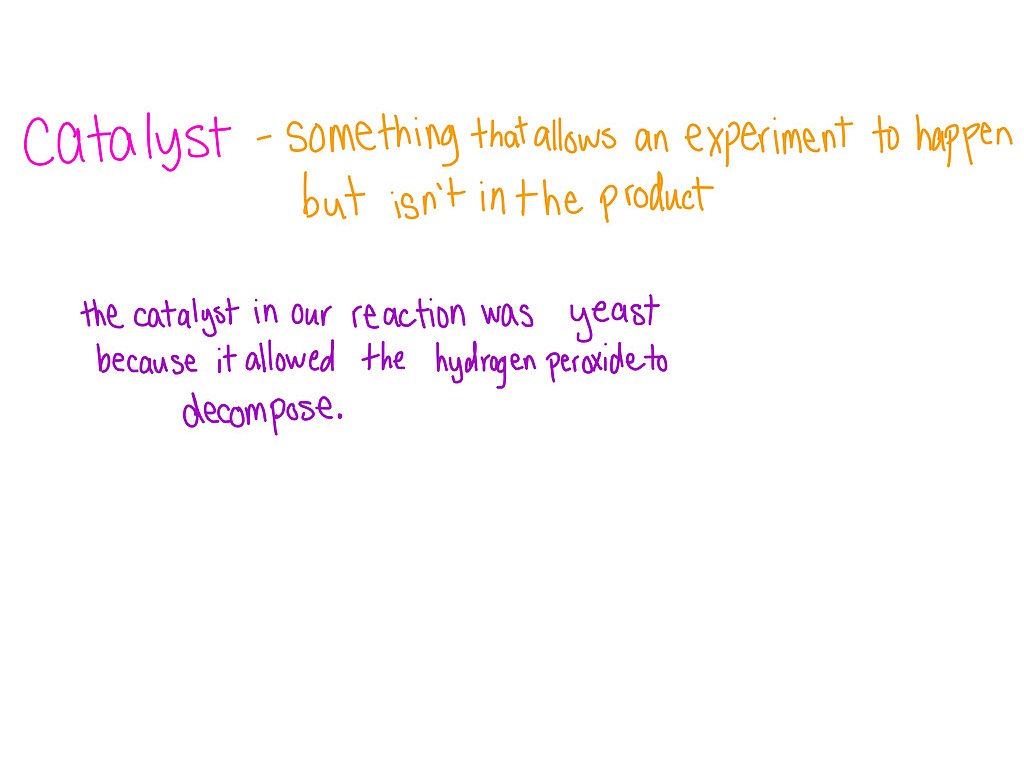 Catalyst - something that allows an experiment to happen
but isn't in the product
the catalyst in our reaction was yeast
because it allowed the hydrogen peroxide to
decompose.